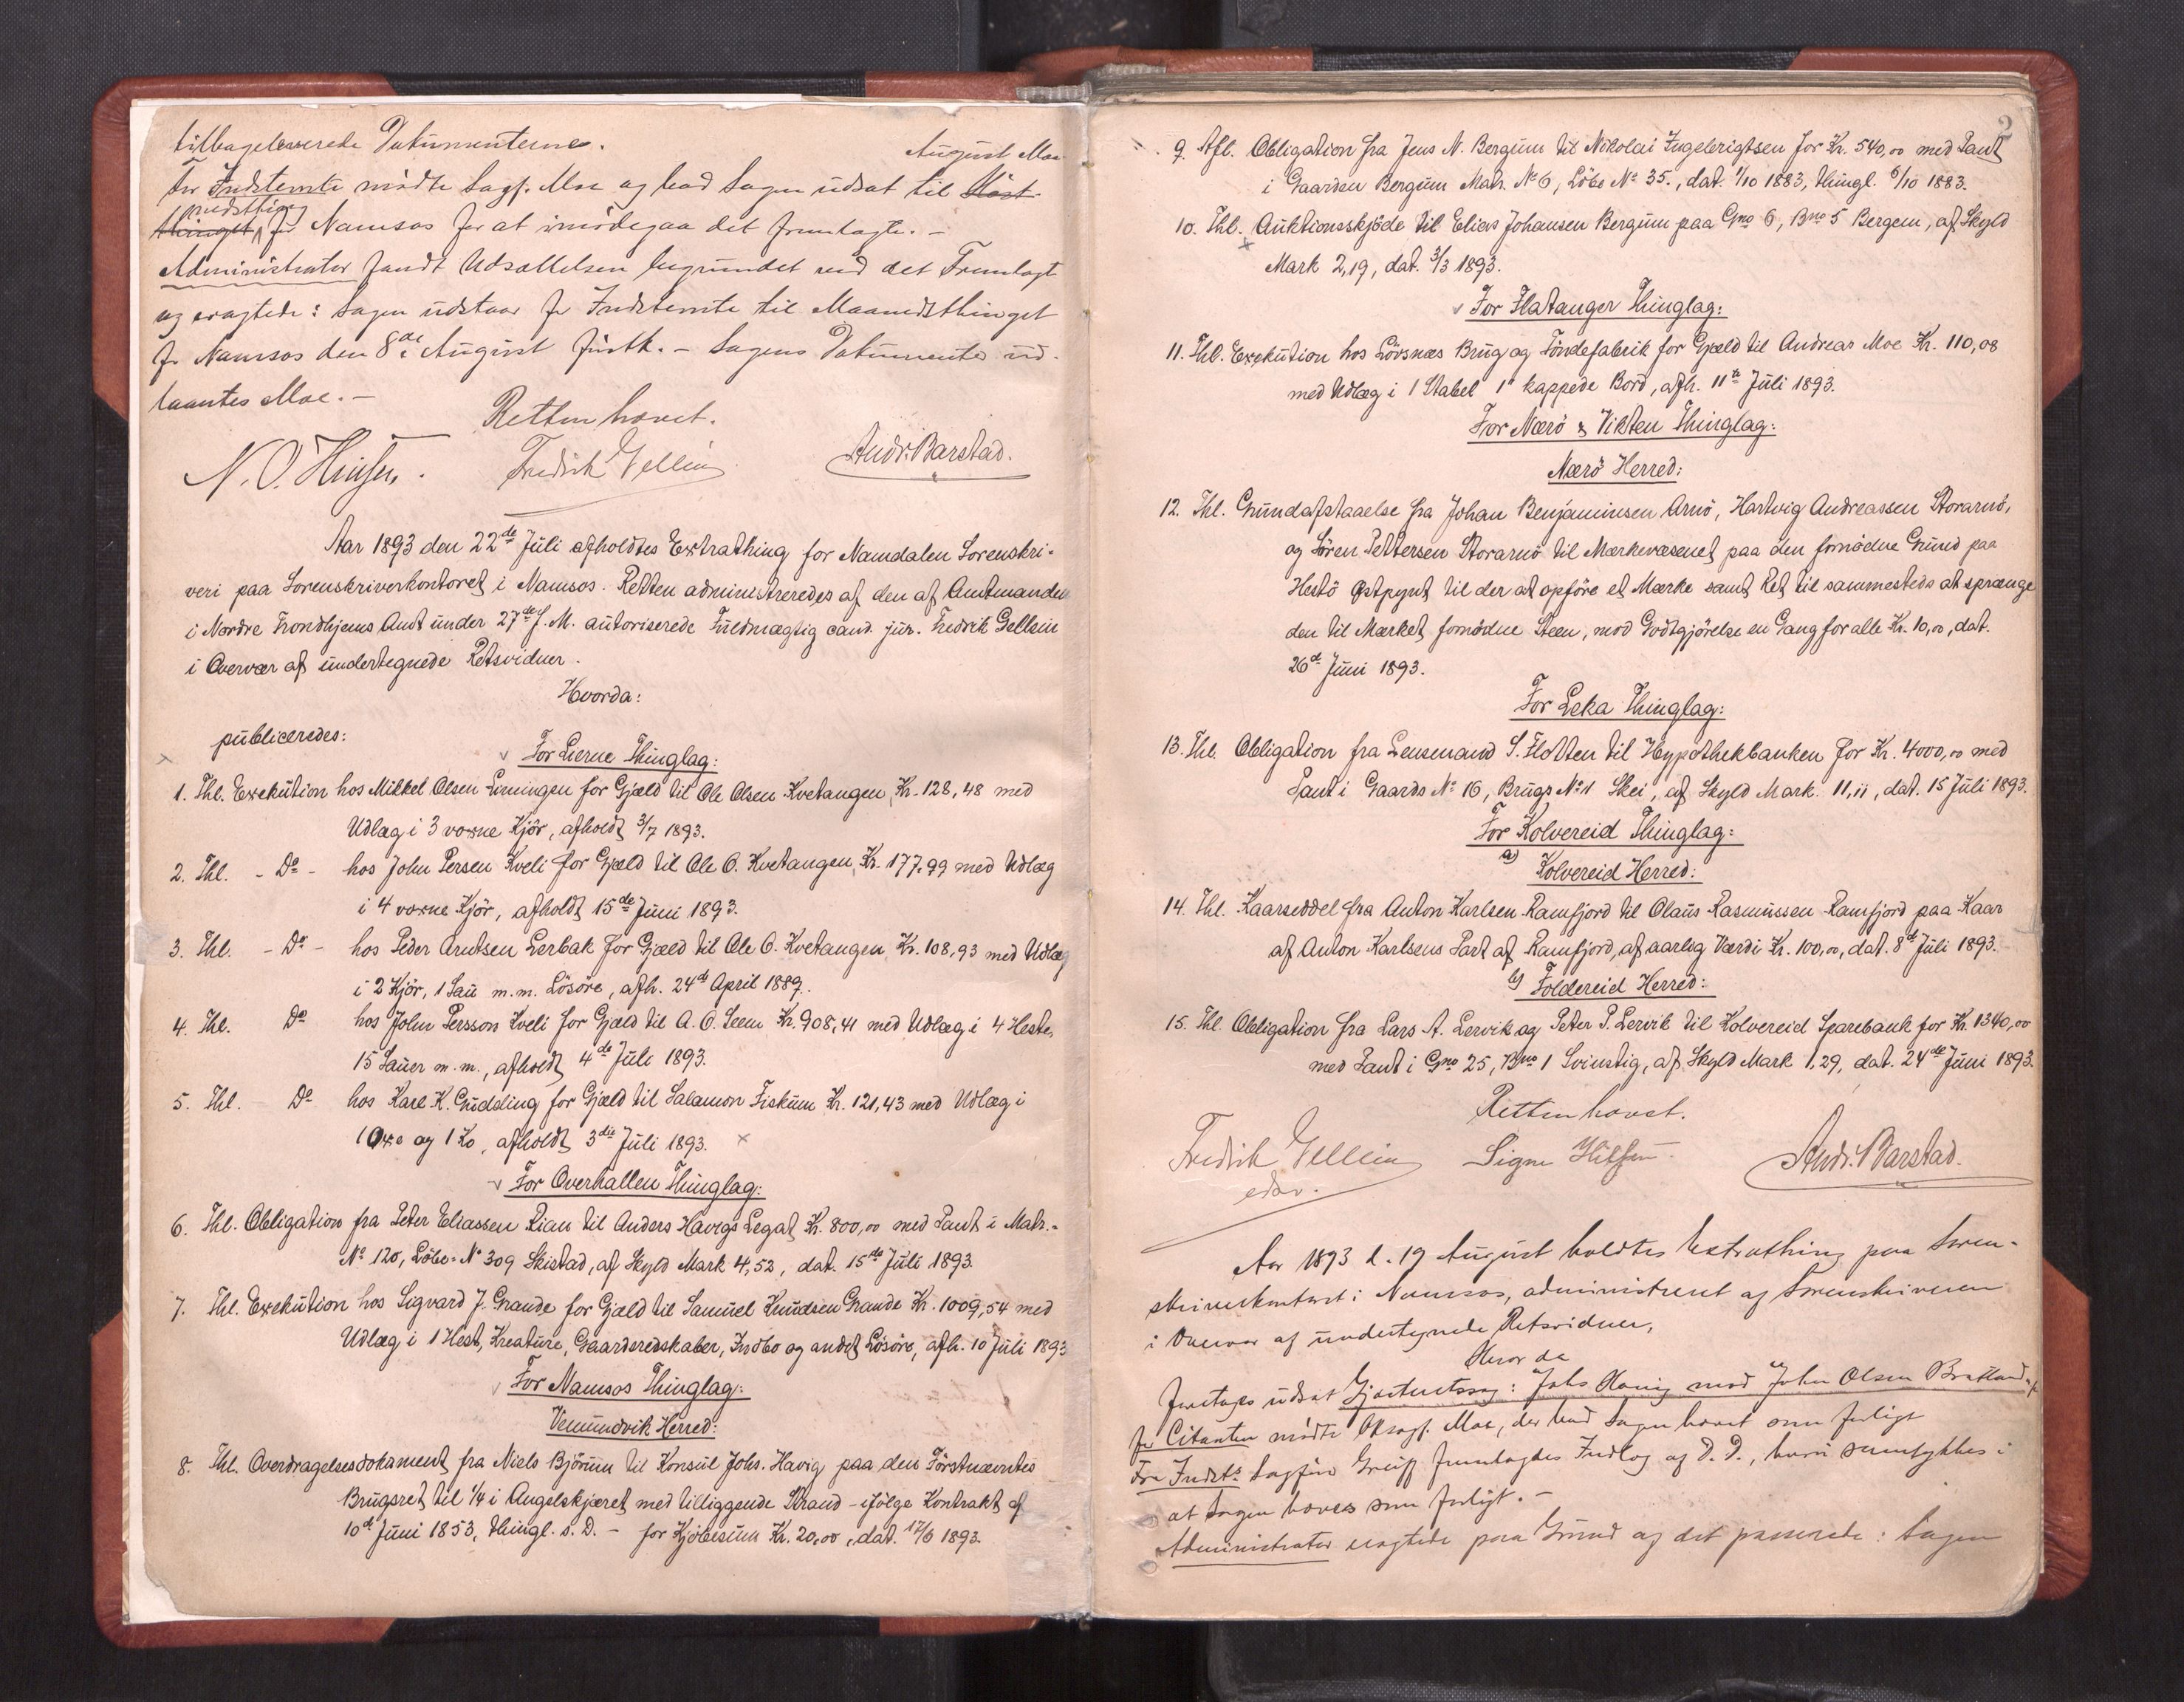 tilbageleverede Dokumenterne.
August Moe
For Indstevnte mødte Sagf. Moe og bad Sagen udsat til Høst-
thinget maanedsthing for Namsos for at imødegaa det fremlagte. -
Administrator fandt Udsættelsen begrundet ved det Fremlagte
og eragtede: Sagen udstaar for Indstevnte til Maanedsthinget
for Namsos den 8de August førstk. - Sagens Dokumenter ud-
laantes Moe. -
Retten hævet.
N. O. Hinsen. Fredrik Gellein Andr. Barstad.
Aar 1893 den 22de Juli afholdtes Extrathing for Namdalen Sorenskri-
veri paa Sorenskriverkontoret i Namsos. Retten administreredes af den af Amtmanden
i Nordre Trondhjems Amt under 27de f. M. autoriserede Fuldmægtig cand. jur. Fredrik Gellein
i Overvær af undertegnede Retsvidner.
Hvorda:
publiceredes:
For Lierne Thinglag:
1. Thl. Exekution hos Mikkel Olsen Limingen for Gjæld til Ole Olsen Kvetangen, Kr. 128,48 med
Udlæg i 3 voxne Kjør, afholdt 3/7 1893.
2. Thl. - Do - hos John Persen Kveli for Gjæld til Ole O. Kvetangen, Kr. 177,99 med Udlæg
i 4 voxne Kjør, afholdt 15de Juni 1893.
3. Thl. - Do - hos Peder Arntsen Lerbak for Gjæld til Ole O. Kvetangen Kr. 108,93 med Udlæg
i 2 Kjør, 1 Sau m.m. Løsøre, afh. 24de April 1889.
4. Thl. Do hos John Persson Kveli for Gjæld til A. O. Seem Kr. 908,41 med Udlæg i 4 Heste,
15 Sauer m.m., afholdt 4de Juli 1893.
5. Thl. Do hos Karl K. Gudsling for Gjæld til Salamon Fiskum Kr. 121,43 med Udlæg i
1 Oxe og 1 Ko, afholdt 3die Juli 1893.
For Overhallen Thinglag:
6. Thl. Obligation fra Peter Eliassen Rian til Anders Havigs Legat Kr. 800,00 med Pant i Matr.-
No 120, Löbe-No 309 Skistad, af Skyld Mark 4,52, dat. 15de Juli 1893.
7. Thl. Exekution hos Sigvard J. Grande for Gjæld til Samuel Knudsen Grande Kr. 1009,54 med
Udlæg i 1 Hest, Kreature, Gaardsredskaber, Indbo og andet Løsøre, afh. 10 Juli 1893
For Namsos Thinglag:
Vemundvik Herred:
8. Thl. Overdragelsesdokument fra Niels Bjørum til Konsul Johs. Havig paa den Förstnævntes
Brugsret til 1/4 i Angelskjæret med tilliggende Strand - ifølge Kontrakt af
10de Juni 1853, thingl. s. D. - for Kjøbesum Kr. 20,00, dat. 17/6 1893.
2
9. Afl. Obligation fra Jens N. Bergum til Nikolai Ingebrigtsen for Kr. 540,00 med Pant
i Gaarden Bergum Matr. No 6, Löbe No 35., dat. 1/10 1883, thingl. 6/10 1883.
10. Thl. Auktionsskjöde til Elias Johansen Bergum paa Gno 6, Bno 5 Bergem, af Skyld
Mark 2,19, dat. 3/3 1893.
For Flatanger Thinglag:
11. Thl. Exekution hos Lövsnæs Brug og Töndefabrik for Gjæld til Andreas Moe Kr. 110,08
med Udlæg i 1 Stabel 1" kappede Bord, afh. 11te Juli 1893.
For Nærö & Vikten Thinglag:
Nærö Herred:
12. Thl. Grundafstaaelse fra Johan Benjaminsen Arnö, Hartvig Andreassen Storarnö,
og Sören Pettersen Storarnö til Mærkevæsenet paa den fornödne Grund paa
Hestö Østpynt til der at opföre et Mærke samt Ret til sammesteds at sprænge
den til Mærket fornödne Steen, mod Godtgjörelse en Gang for alle Kr. 10,00, dat.
26de Juni 1893.
For Leka Thinglag:
13. Thl. Obligation fra Lensmand S. Flotten til Hypothekbanken for Kr. 4000,00 med
Pant i Gaards No 16, Brugs No 1 Skei, af Skyld Mark 11,11, dat. 15 Juli 1893.
For Kolvereid Thinglag:
a) Kolvereid Herred:
14. Thl. Kaarseddel fra Anton Karlsen Ramfjord til Olaus Rasmussen Ramfjord paa Kaar
af Anton Karlsens Part af Ramfjord, af aarlig Værdi Kr. 100,00, dat. 8de Juli 1893.
b) Foldereid Herred:
15. Thl. Obligation fra Lars A. Lervik og Peter P. Lervik til Kolvereid Sparebank for Kr. 1340,00
med Pant i Gno 25, Bno 1 Svinstig, af Skyld Mark 1,29, dat. 24de Juni 1893.
Retten hævet.
Fredrik Gellein Signe Andr. Barstad.
Aar 1893 d. 19 August holdtes Extrathing paa Soren-
skriverkontoret i Namsos, administreret af Sorenskriveren
i Overvær af undertegnede Retsvidner,
Hvor da
foretoges udsat Gjæsteretssag: Johs Havig mod John Olsen Bratland
for Citanten mødte Oksagf. Moe, der bad Sagen hævet som forligt
For Indst. Sagfører Greiff fremlagdes Indlæg af D. D., hvori samtykkes i
at Sagen hæves som forligt. -
Administrator eragtede paa Grund af det passerede: Sagen